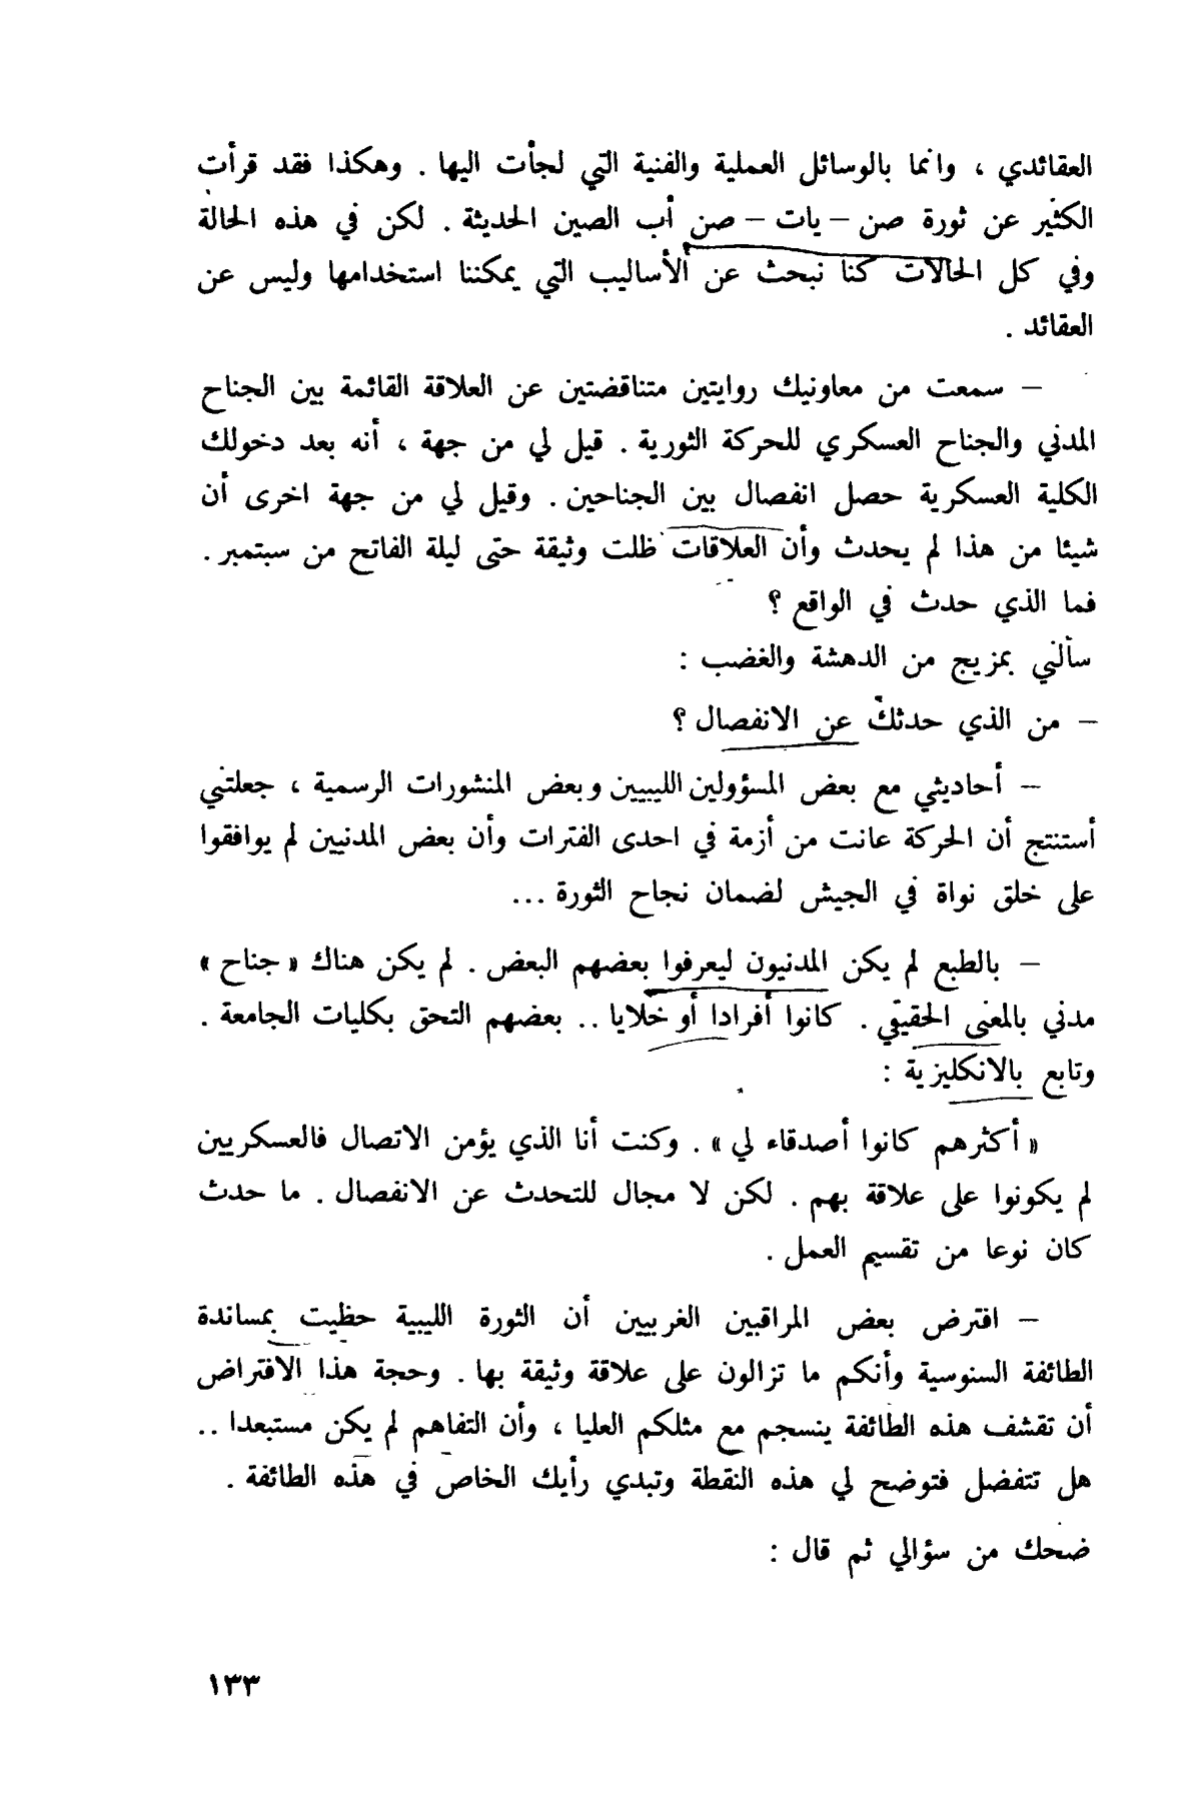 العقائدي ، وانما بالوسائل العملية والفنية التي لجأت اليها . وهكذا فقد قرأت
الكثير عن ثورة صن – يات – صن أب الصين الحديثة . لكن في هذه الحالة
وفي كل الحالات كنا نبحث عن الأساليب التي يمكننا استخدامها وليس عن
العقائد .
– سمعت من معاونيك روايتين متناقضتين عن العلاقة القائمة بين الجناح
المدني والجناح العسكري للحركة الثورية . قيل لي من جهة ، أنه بعد دخولك
الكلية العسكرية حصل انفصال بين الجناحين . وقيل لي من جهة اخرى أن
شيئا من هذا لم يحدث وأن العلاقات ظلت وثيقة حتى ليلة الفاتح من سبتمبر .
فما الذي حدث في الواقع ؟
سألني بمزيج من الدهشة والغضب :
– من الذي حدثك عن الانفصال ؟
– أحاديثي مع بعض المسؤولين الليبيين وبعض المنشورات الرسمية ، جعلتني
أستنتج أن الحركة عانت من أزمة في احدى الفترات وأن بعض المدنيين لم يوافقوا
على خلق نواة في الجيش لضمان نجاح الثورة ...
– بالطبع لم يكن المدنيون ليعرفوا بعضهم البعض . لم يكن هناك « جناح »
مدني بالمعنى الحقيقي . كانوا أفرادا أو خلايا .. بعضهم التحق بكليات الجامعة .
وتابع بالانكليزية :
« أكثرهم كانوا أصدقاء لي » . وكنت أنا الذي يؤمن الاتصال فالعسكريين
لم يكونوا على علاقة بهم . لكن لا مجال للتحدث عن الانفصال . ما حدث
كان نوعا من تقسيم العمل .
– افترض بعض المراقبين الغربيين أن الثورة الليبية حظيت بمساندة
الطائفة السنوسية وأنكم ما تزالون على علاقة وثيقة بها . وحجة هذا الافتراض
أن تقشف هذه الطائفة ينسجم مع مثلكم العليا ، وأن التفاهم لم يكن مستبعدا ..
هل تتفضل فتوضح لي هذه النقطة وتبدي رأيك الخاص في هذه الطائفة .
ضحك من سؤالي ثم قال :
١٣٣